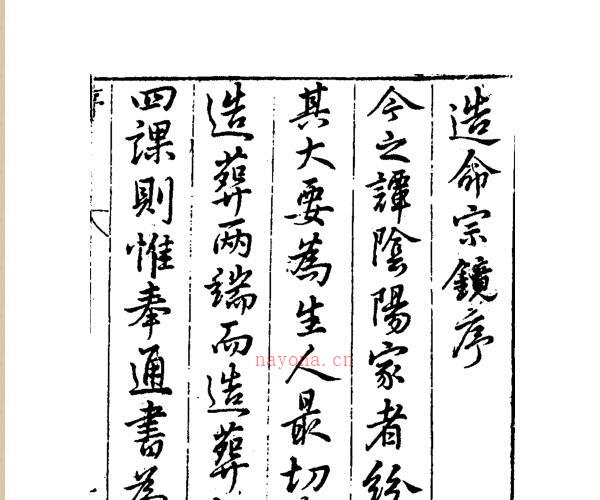 造命宗鏡序
今之譚陰陽家者紛
其大要為生人最切
造葬兩端而造葬
四課則惟奉通書為
序
nayona.cn